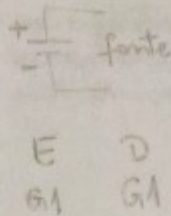 +
fonte
-
E D
G1 G1